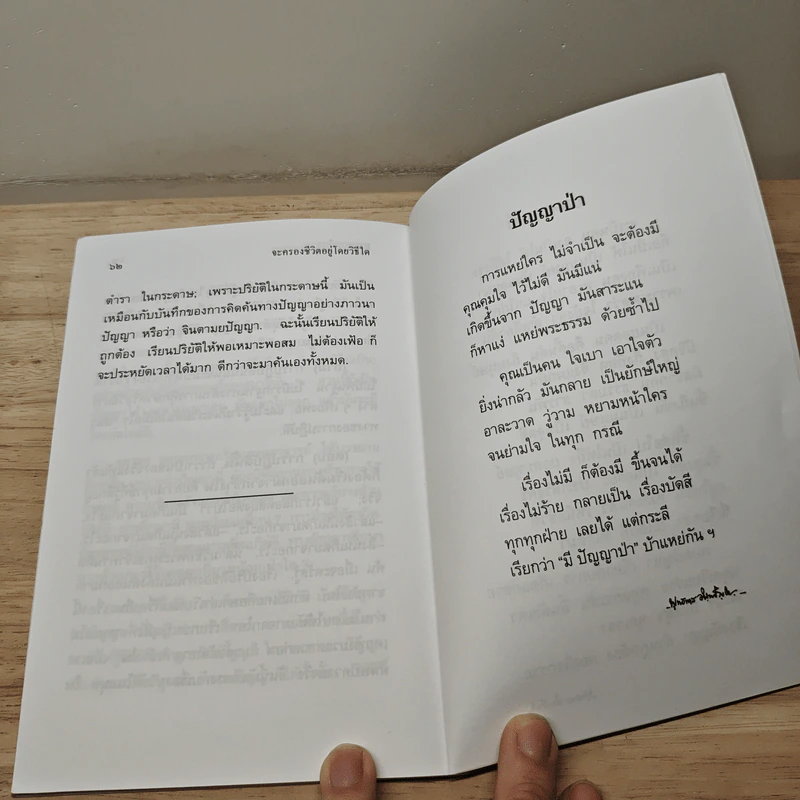 ๖๒
จะครองชีวิตอยู่โดยวิธีใด
ตำรา ในกระดาษ; เพราะปริยัติในกระดาษนี้ มันเป็น
เหมือนกับบันทึกของการคิดค้นทางปัญญาอย่างภาวนา
ปัญญา หรือว่า จินตามยปัญญา. ฉะนั้นเรียนปริยัติให้
ถูกต้อง เรียนปริยัติให้พอเหมาะพอสม ไม่ต้องเฟ้อ ก็
จะประหยัดเวลาได้มาก ดีกว่าจะมาค้นเองทั้งหมด.
ปัญญาป่า
การแหย่ใคร ไม่จำเป็น จะต้องมี
คุณคุมใจ ไว้ไม่ดี มันมีแน่
เกิดขึ้นจาก ปัญญา มันสาระแน
ก็หาแง่ แหย่พระธรรม ด้วยซ้ำไป
คุณเป็นคน ใจเบา เอาใจตัว
ยิ่งน่ากลัว มันกลาย เป็นยักษ์ใหญ่
อาละวาด วู่วาม หยามหน้าใคร
จนย่ามใจ ในทุก กรณี
เรื่องไม่มี ก็ต้องมี ขึ้นจนได้
เรื่องไม่ร้าย กลายเป็น เรื่องบัดสี
ทุกทุกฝ่าย เลยได้ แต่กระลี
เรียกว่า “มี ปัญญาป่า” บ้าแหย่กัน ฯ